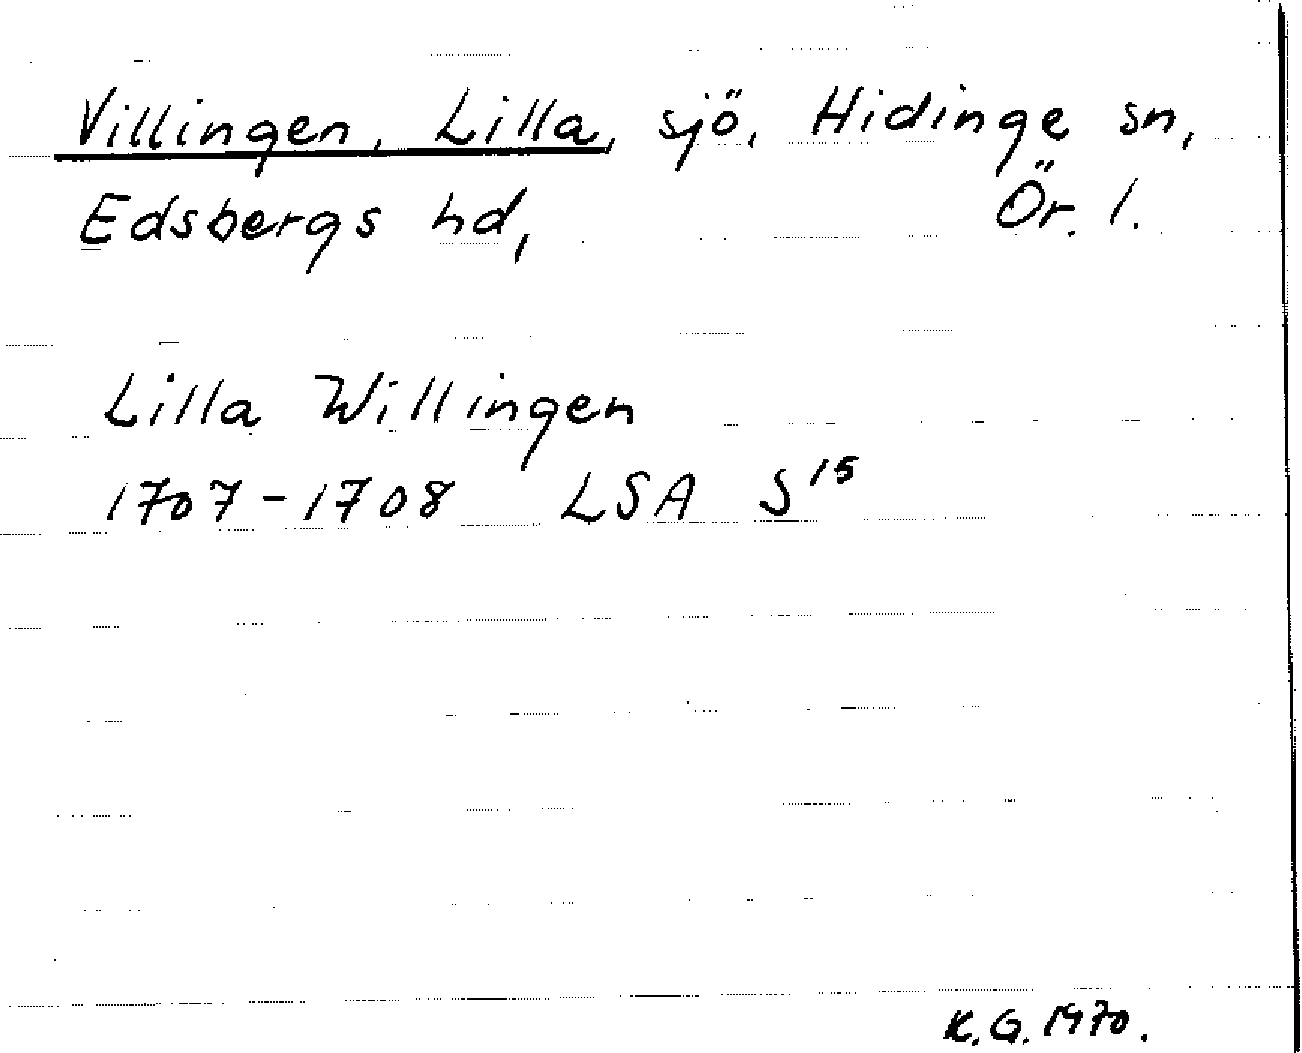 Villingen, Lilla, sjö, Hidinge sn,
Edsbergs hd, Ör. l.
Lilla Willingen
1707-1708 LSA S¹⁵
K.G. 1970.